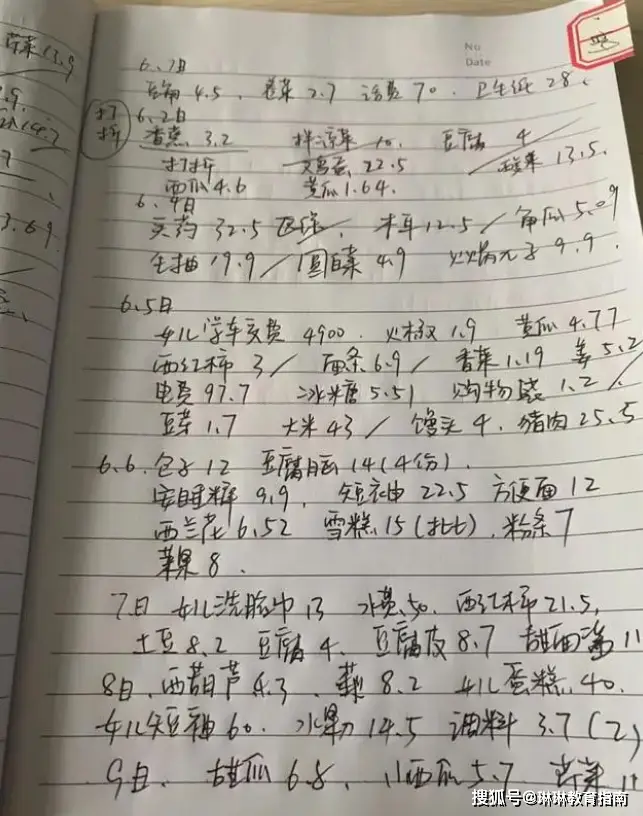 No
Date
芹菜13.9
3.69
6.1日
豆角4.5、卷菜2.7 话费70、卫生纸28、
打折
6.2日
香蕉 3.2 拌凉菜 10、豆腐 4
打折 鸡蛋、22.5 / 13.5、
西瓜4.6 黄瓜1.64、
6、4日
买药 32.5 、木耳12.5 / 角瓜5.09
生抽19.9 / 圆白菜4.9 火锅丸子9.9、
6.5日
女儿学车交费 4900、 1.9 黄瓜4.77
西红柿 3 / 面条6.9 / 香菜1.19 姜5.2
电费97.7 冰糖5.51 购物袋1.2 /
豆芽1.7 大米43 / 馒头4、猪肉25.5
6、6、包子12 豆腐脑14(4份)、
9.9、短袖22.5 方便面12
西兰花6.52 雪糕15(批)、粉条7
苹果8、
7日 女儿洗脸巾13 水费、50、西红柿21.5,
土豆8.2 豆腐4、豆腐皮8.7 甜面酱11
8日、西葫芦4.3、 8.2 女儿蛋糕、40、
女儿短袖60、水果14.5 调料3.7(2)
9日、甜瓜6.8、小西瓜5.7 芹菜11
搜狐号@琳琳教育指南